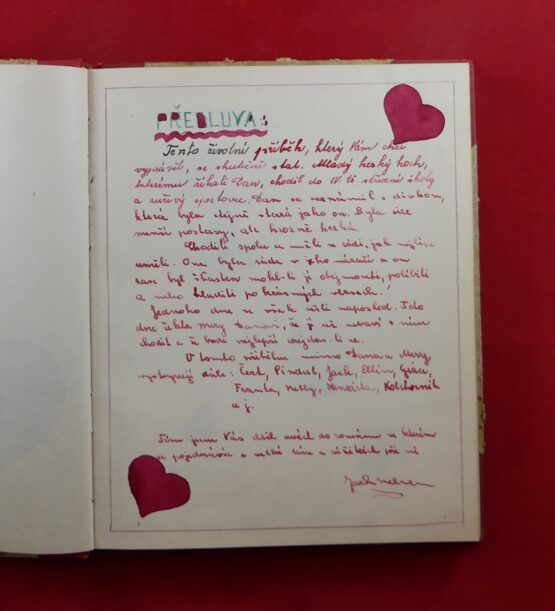 PŘEDLUVA:
Tento životní příběh, který Vám chci
vyprávět, se skutečně stal. Mladý hezký hoch,
kterému říkali Dan, chodil do IV. té střední školy
a zuřivý sportovec. Dan se seznámil s dívkou,
která byla stejně stará jako on. Byla sice
menší postavy, ale hrozně hezká.
Chodili spolu a měli se rádi, jak nejlépe
uměli. Ona byla ráda v jeho náručí a on
zase byl šťasten mohl-li ji obejmouti, políbiti
a nebo hladiti po krásných vlasech!
Jednoho dne se však sešli naposled. Toto
dne řekla Mery Danovi, že ji už nebaví s ním
chodit a že bude nejlepší rozejdou-li se.
V tomto příběhu mimo Dana a Mery
vystupují dále: Čert, Pindust, Jack, Ellen, Grace,
Franta, Nelly, Kolchozník
a j.
Tím jsem Vás chtěl uvést do románu ve kterém
se pojednává o velké lásce a zážitcích při ní